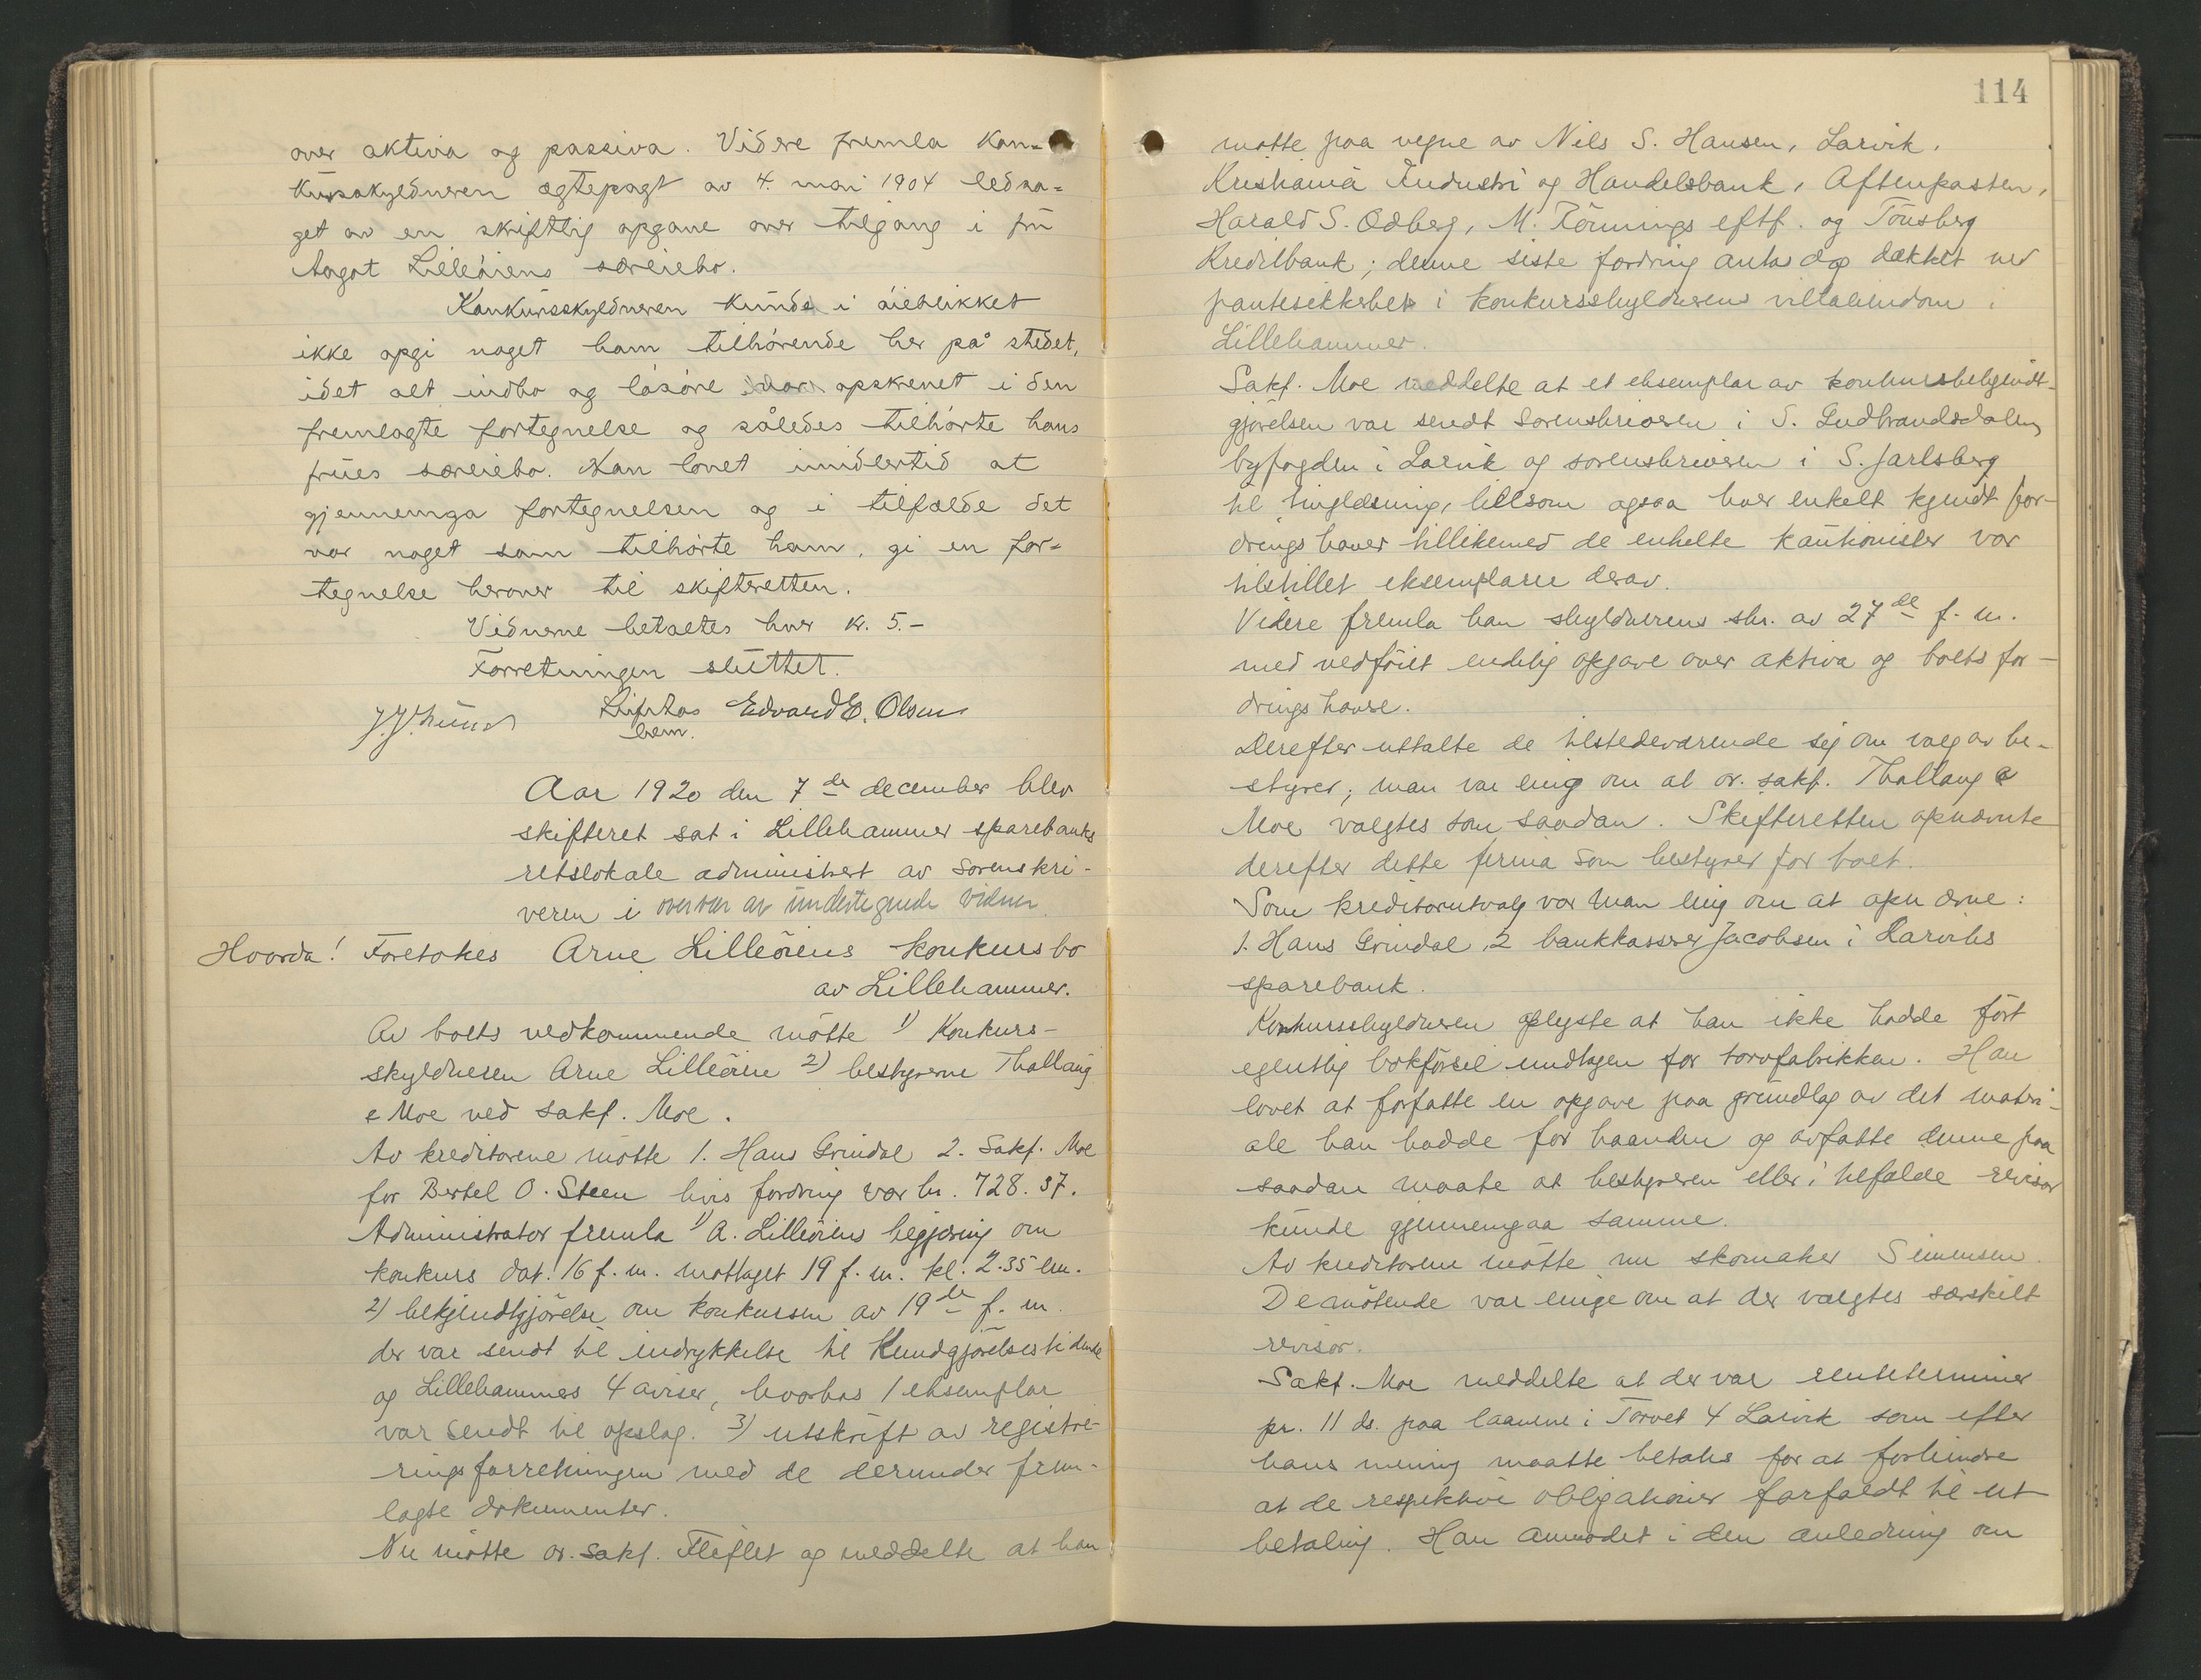 over aktiva og passiva. Videre fremla kon-
kursskyldneren ægtepagt av 4. mai 1904 ledsa-
get av en skriftlig opgave over tilgang i frü
Aagot Lilleöiens særeiebo.
Konkursskyldneren kunde i öieblikket
ikke opgi noget ham tilhörende her på stedet,
idet alt indbo og lösöre var opskrevet i den
fremlagte fortegnelse og således tilhörte hans
frües særeiebo. Han lovet imidlertid at
gjennemga fortegnelsen og i tilfælde det
var noget som tilhörte ham, gi en for-
tegnelse herover til skifteretten.
Vidnerne betaltes hver kr. 5.-
Forretningen slüttet.
Edvard E. Olsen
bem.
Aar 1920 den 7de december blev
skifteret sat i Lillehammer sparebanks
retslokale administrert av sorenskri-
veren i overvær av undertegnede vidner
Hvorda! Foretokes Arne Lilleöiens konkursbo
av Lillehammer.
Av boets vedkommende mötte 1) Konkurs-
skyldneren Arne Lilleöien 2) bestyrerne Thallaug
& Moe ved sakf. Moe.
Av kreditorene mötte 1. Hans Grindal 2. Sakf. Moe
for Bertel O. Steen hvis fordring var kr. 728.37.
Administrator fremla 1) A. Lilleöiens begjæring om
konkurs dat. 16 f.m. mottaget 19 f.m. kl. 2.35 em.
2) bekjendtgjörelse om konkursen av 19de f.m.
der var sendt til indrykkelse til Kundgjörelsestidende
og Lillehammers 4 aviser, hvorhos 1 eksemplar
var sendt til opslag. 3) utskrift av registre-
ringsforretningen med de derunder frem-
lagte dokumenter.
Nu mötte or. sakf. Fleflet og meddelte at han
114
mötte paa vegne av Nils S. Hansen, Larvik,
Kristiania Industri og Handelsbank, Aftenposten,
Harald S. Ødberg, M. Rönnings eftf. og Tönsberg
Kreditbank; denne siste fordring antas dog dækket ved
pantesikkerhet i konkursskyldnerens villaeiendom i
Lillehammer.
Sakf. Moe meddelte at et eksemplar av konkursbekjendt-
gjörelsen var sendt Sorenskriveren i S. Gudbrandsdalen,
byfogden i Larvik og sorenskriveren i S. Jarlsberg
til tinglæsning, likesom ogsaa hver enkelt kjendt for-
dringshaver tillikemed de enkelte kautionister var
tilstillet eksemplarer derav.
Videre fremla han skyldnerens skr. av 27de f.m.
med vedföiet endelig opgave over aktiva og boets for-
dringshavere.
Derefter uttalte de tilstedeværende sig om valg av be-
styrer; man var enig om at or. sakf. Thallaug &
Moe valgtes som saadan. Skifteretten opnævnte
derefter dette firma som bestyrer for boet.
Som kreditorutvalg var man enig om at opnævne:
1. Hans Grindal, 2 bankkasserer Jacobsen i Larviks
sparebank.
Konkursskyldneren oplyste at han ikke hadde fört
egentlig bokförsel undtagen for torvfabrikken. Han
lovet at forfatte en opgave paa grundlag av det matri-
ale han hadde for haanden og avfatte denne paa
saadan maate at bestyreren eller i tilfælde revisor
kunde gjennemgaa samme.
Av kreditorene mötte nu skomaker Simensen.
De mötende var enige om at der valgtes særskilt
revisor.
Sakf. Moe meddelte at der var renteterminer
pr. 11 ds. paa laanene i Torvet 4 Larvik som efter
hans mening maatte betales for at forhindre
at de respektive obligationer forfaldt til ut
betaling. Han anmodet i den anledning om